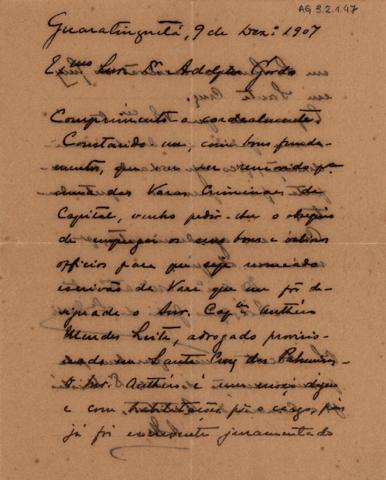 AG 3.2.1.47
Guaratinguetá, 9 de Dez.º 1907
Exmo Snr. Dr. Adolpho Gordo
Comprimento-o cordealmente.
Constando-me, com bons funda-
mentos, que vou ser removido pa
uma das Varas Criminaes da
Capital, venho pedir-lhe o obsequio
de empregar os seus bons e valiosos
officios para que seja nomeado
escrivão da Vara que me fôr de-
signada o Snr. Capm Anthero
Mendes Leite, advogado provisio-
nado em Santa Cruz das Palmeiras.
O Snr. Anthero é um moço digno
e com habilitações pa o cargo, pois
já foi escrevente juramentado